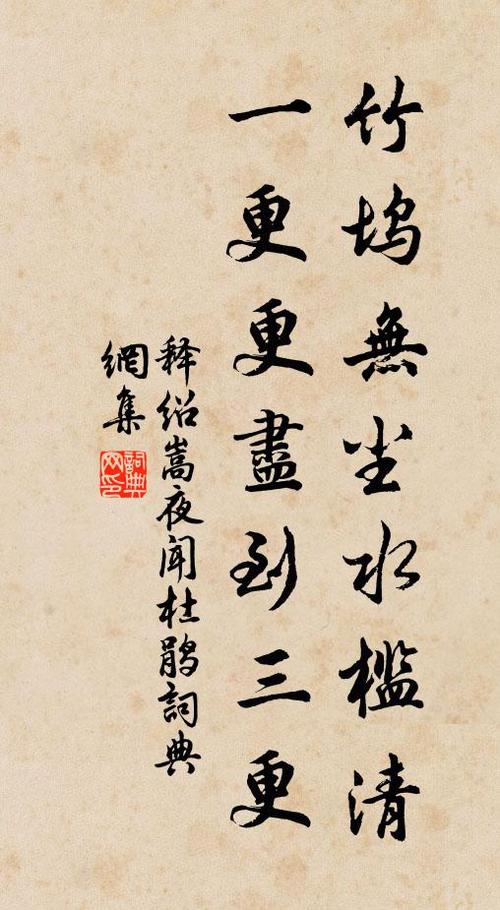 竹坞無尘水檻清
一更更盡到三更
释绍嵩夜闻杜鹃詞典
網集
詞典
网印